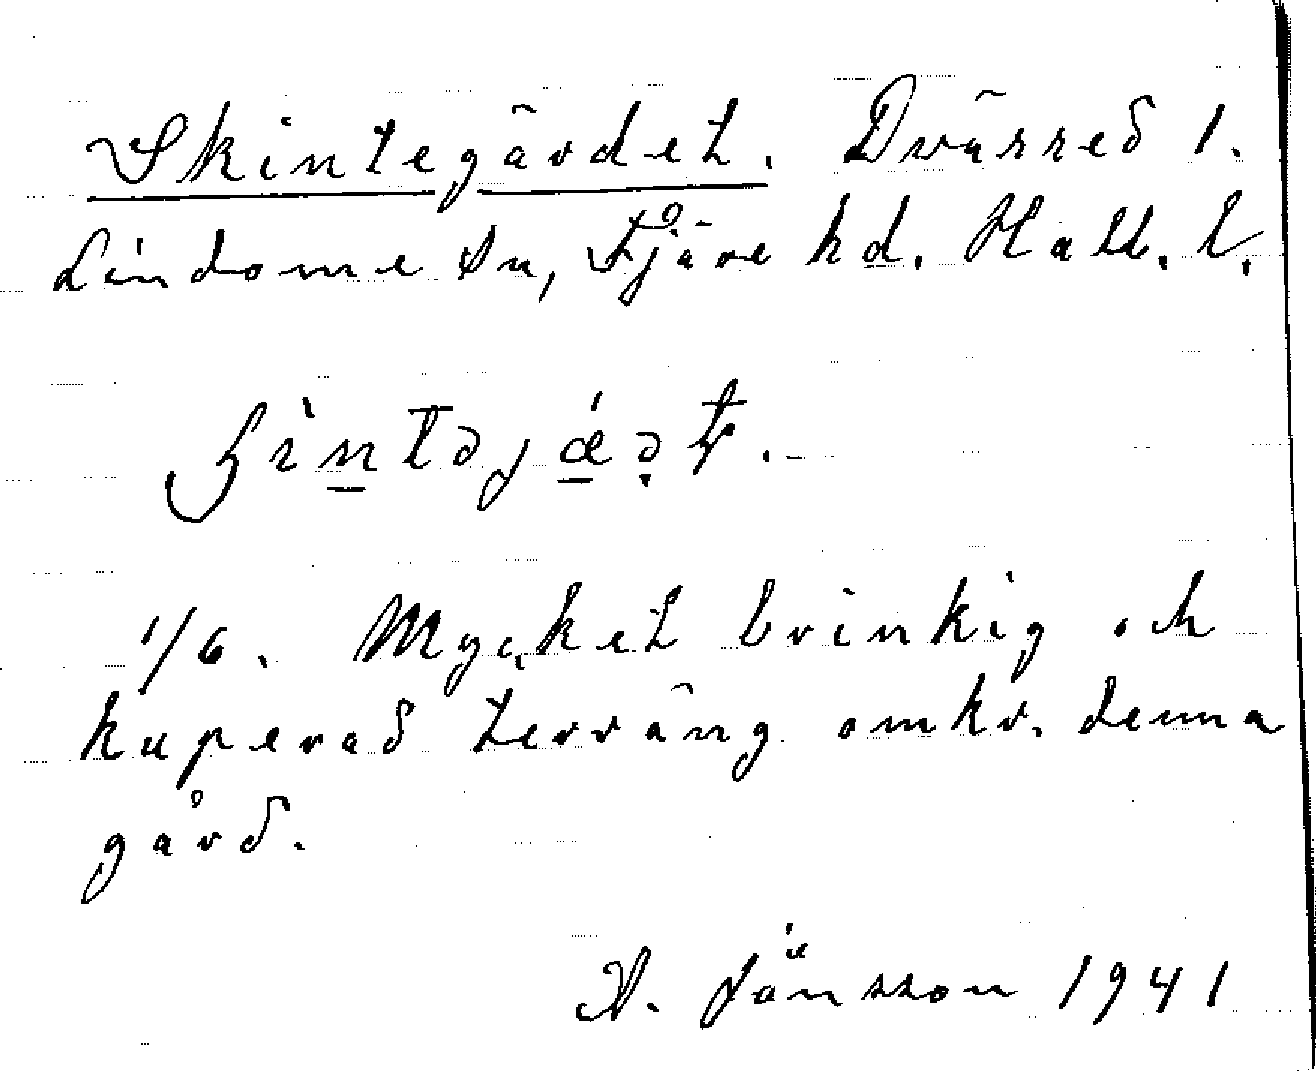 Skintegärdet. Dvärred 1.
Lindome sn, Fjäre hd. Hall. l.
1/6. Mycket brinkig och
kuperad terräng omkr. denna
gård.
Jönsson 1941